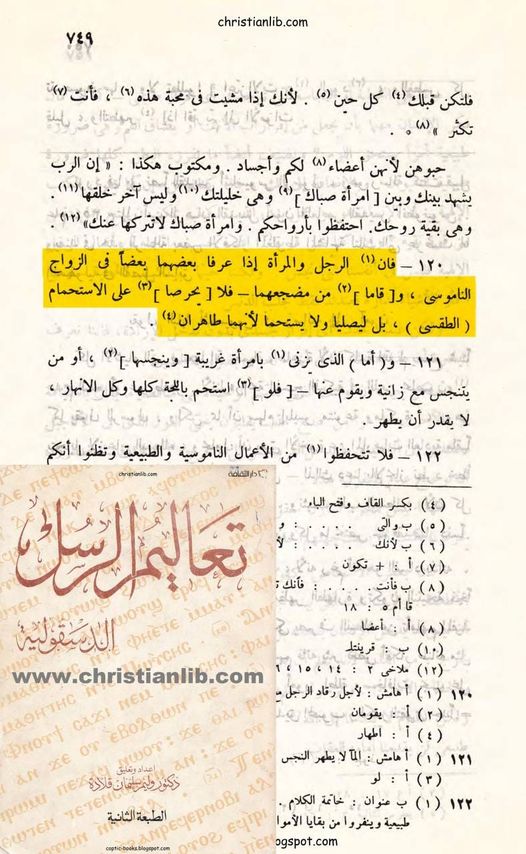 christianlib.com
٧٤٩
فلتكن قبلك(٤) كل حين(٥) . لأنك إذا مشيت فى محبة هذه(٦) ، فأنت(٧)
تكثر »(٨) .
حبوهن لأنهن أعضاء(٨) لكم وأجساد . ومكتوب هكذا : « إن الرب
يشهد بينك وبين [ امرأة صباك ](٩) وهى خليلتك(١٠) وليس آخر خلقها(١١) .
وهى بقية روحك . احتفظوا بأرواحكم . وامرأة صباك لا تتركها عنك»(١٢) .
١٢٠ – فان(١) الرجل والمرأة إذا عرفا بعضهما بعضاً فى الزواج
الناموسى ، و[ قاما ](٢) من مضجعهما – فلا [ يحرصا ](٣) على الاستحمام
( الطقسى ) ، بل ليصليا ولا يستحما لأنهما طاهران(٤) .
١٢١ – و( أما ) الذى يزنى(١) بامرأة غريبة [ وينجسها ](٢) ، أو من
يتنجس مع زانية ويقوم عنها – [ فلو ](٣) استحم باللجة كلها وكل الانهار ،
لا يقدر أن يطهر .
١٢٢ – فلا تتحفظوا(١) من الأعمال الناموسية والطبيعية وتظنوا أنكم
(٤) بكسر القاف وفتح الباء
(٥) ب والتى . . . . : و
(٦) ب لأنك . . . . :
(٧) أ : + تكون
(٨) ب فأنت . . . . : فأنك
قا أم ٥ : ١٨
(٨) أ : أعضا
(١٠) ب : قرينتك
(١٢) ملاخى ٢ : ١٤ ، ١٥ ،
١٢٠ (١) أ هامش : لأجل رقاد الرجل مع
(٢) أ : يقومان
(٤) أ : اطهار
١٢١ (١) أ هامش : الما لا يطهر النجس
(٣) أ : لو
١٢٢ (١) ب عنوان : خاتمة الكلام .
طبيعية وينفروا من بقايا الأموا
christianlib.com
دار الثقافة
تعاليم الرسل
الدسقولية
www.christianlib.com
إعداد وتعليق
دكتور وليم سليمان قلادة
الطبعة الثانية
coptic-books.blogspot.com
ogspot.com